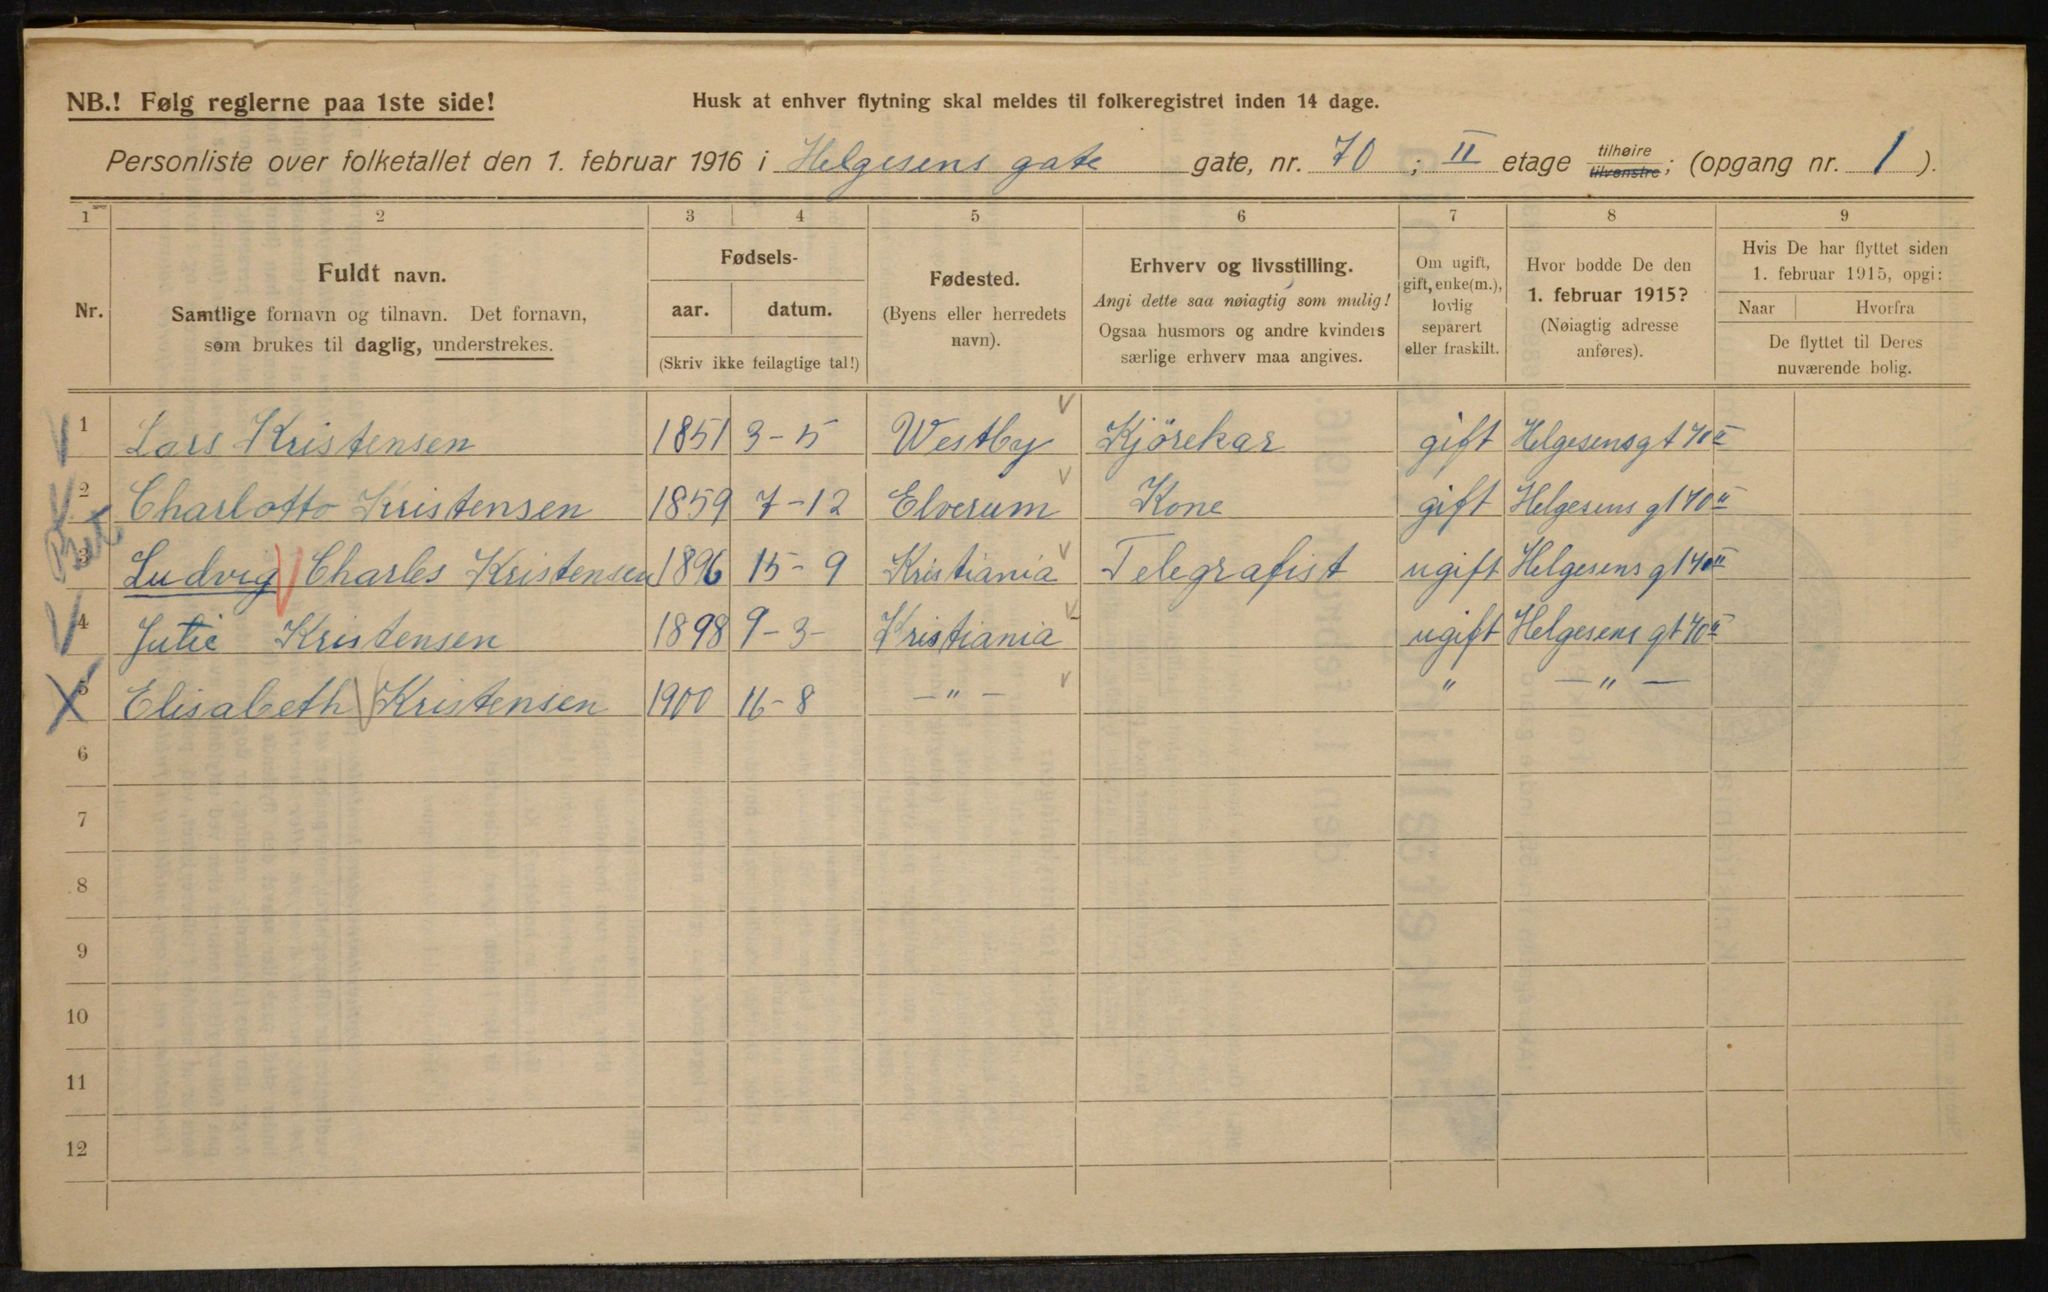 NB.! Følg reglerne paa 1ste side!
Husk at enhver flytning skal meldes til folkeregistret inden 14 dage.
Personliste over folketallet den 1. februar 1916 i Helgesens gate gate, nr. 70 ; II etage tilhøire tilvenstre; (opgang nr. 1 ).
1 2 3 4 5 6 7 8 9
Nr.
Fuldt navn.
Samtlige fornavn og tilnavn. Det fornavn,
som brukes til daglig, understrekes.
Fødsels-
aar. datum.
(Skriv ikke feilagtige tal!)
Fødested.
(Byens eller herredets
navn).
Erhverv og livsstilling.
Angi dette saa nøiagtig som mulig!
Ogsaa husmors og andre kvinders
særlige erhverv maa angives.
Om ugift,
gift, enke(m.),
lovlig
separert
eller fraskilt.
Hvor bodde De den
1. februar 1915?
(Nøiagtig adresse
anføres).
Hvis De har flyttet siden
1. februar 1915, opgi:
Naar Hvorfra
De flyttet til Deres
nuværende bolig.
1 Lars Kristensen 1851 3-5 Westby Kjörekar gift Helgesensgt 70 II
2 Charlotto Kristensen 1859 7-12 Elverum Kone gift Helgesens gt 70 II
3 Ludvig Charles Kristensen 1896 15-9 Kristiania Telegrafist ugift Helgesens gt 70 II
4 Julie Kristensen 1898 9-3- Kristiania ugift Helgesens gt 70 II
5 Elisabeth Kristensen 1900 16-8 -"- " -"-
6
7
8
9
10
11
12